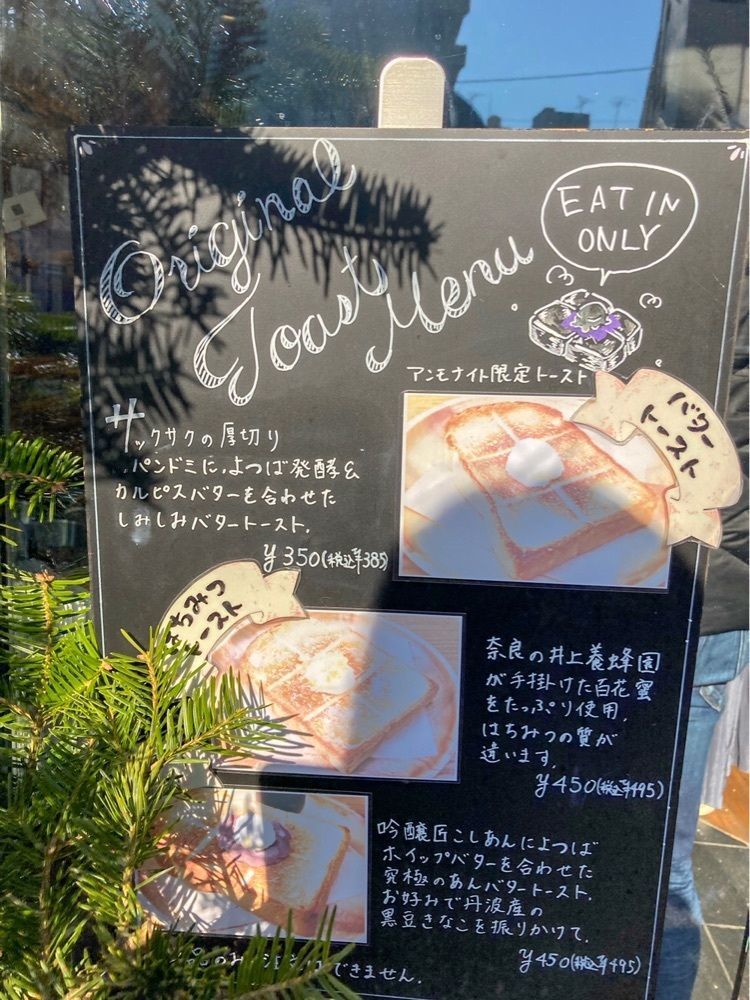 Original
Toast Menu
EAT IN
ONLY
アンモナイト限定トースト
バター
トースト
サックサクの厚切り
パンドミに、よつば発酵&
カルピスバターを合わせた
しみしみバタートースト。
¥350(税込¥385)
はちみつ
トースト
奈良の井上養蜂園
が手掛けた百花蜜
をたっぷり使用。
はちみつの質が
違います。
¥450(税込¥495)
吟醸匠こしあんによつば
ホイップバターを合わせた
究極のあんバタートースト。
お好みで丹波産の
黒豆きなこを振りかけて。
¥450(税込¥495)
できません。